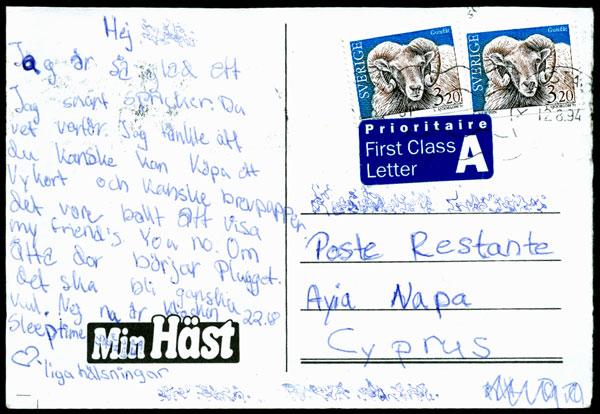 Hej
Jag är så lad att
Jag snart spricker. Du
vet varför. Jag tänkte att
du kanske kan köpa ett
vykort och kanske brevpapper
det vore ballt att visa
my friend's. You no. Om
åtta dar börjar plugget.
det ska bli ganska
kul. Nej nu är klockan 22.00
Sleeptime
liga hälsningar
Min Häst
SVERIGE
Gutefår
3.20
SVERIGE
Gutefår
3.20
12.8.94
Prioritaire
First Class
Letter
A
Poste Restante
Ayia Napa
Cyprus